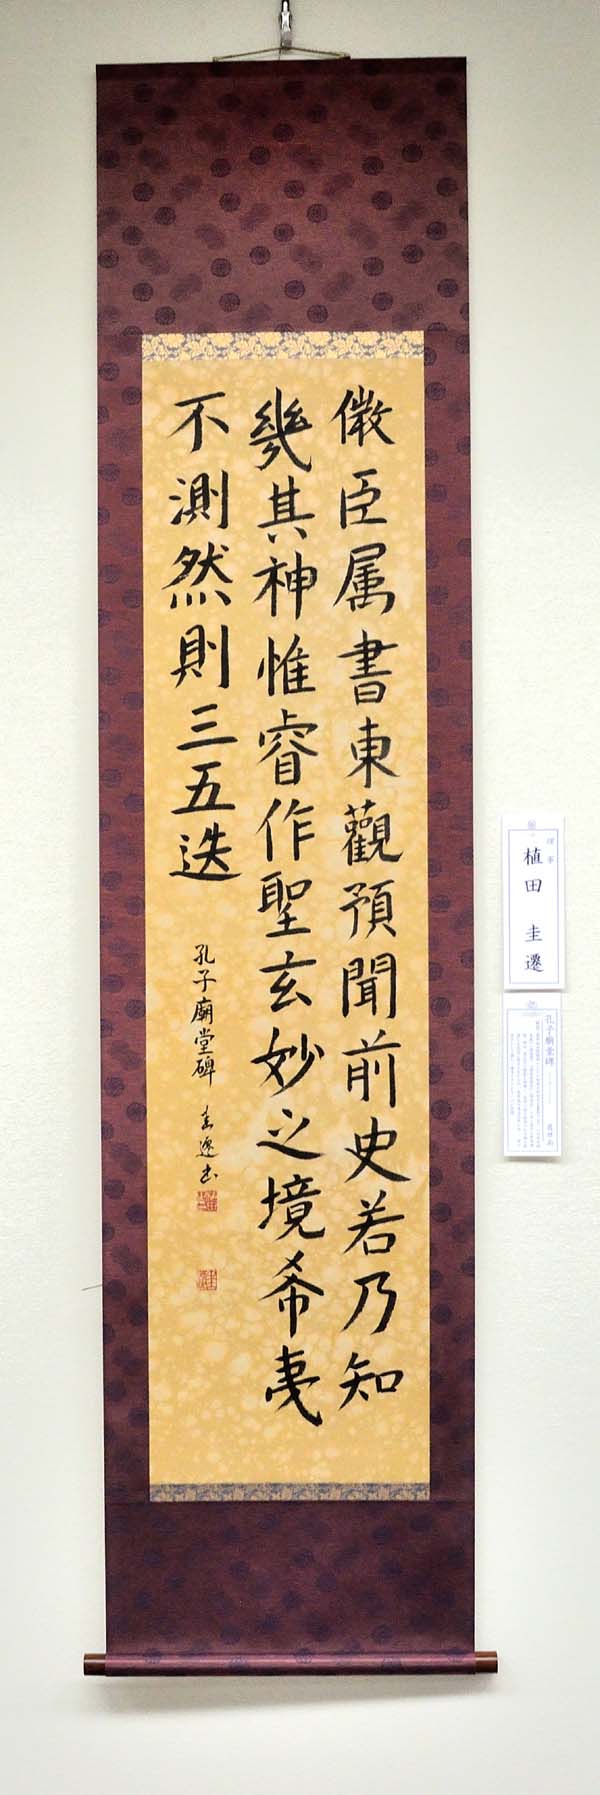 微臣属書東觀預聞前史若乃知
幾其神惟睿作聖玄妙之境希夷
不測然則三五迭
孔子廟堂碑 圭遷书
理事
植田 圭遷
孔子廟堂碑
虞世南